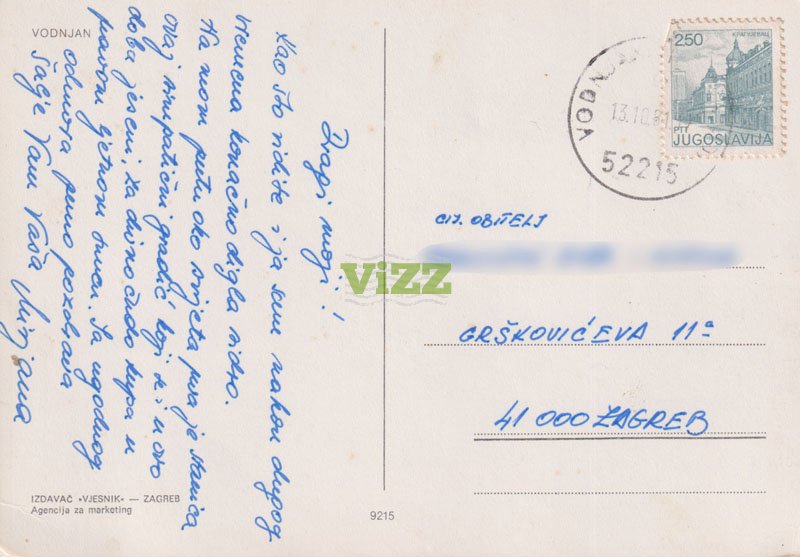 VODNJAN
Dragi moji!
Kao što vidite i ja sam nakon dugog
vremena konačno digla sidro.
Na mom putu oko svijeta prva je stanica
ovaj simpatični gradić koji se i u ovo
doba jeseni, za divno čudo kupa u
pravom ljetnom suncu. Sa ugodnog
odmora puno pozdrava
šalje Vam Vaša Mirjana
IZDAVAČ »VJESNIK« — ZAGREB
Agencija za marketing
9215
VIZZ
VODNJAN
13.10.81
52215
2.50
КРАГУЈЕВАЦ
PTT
JUGOSLAVIJA
CIJ. OBITELJ
GRŠKOVIĆEVA 11a
41 000 ZAGREB